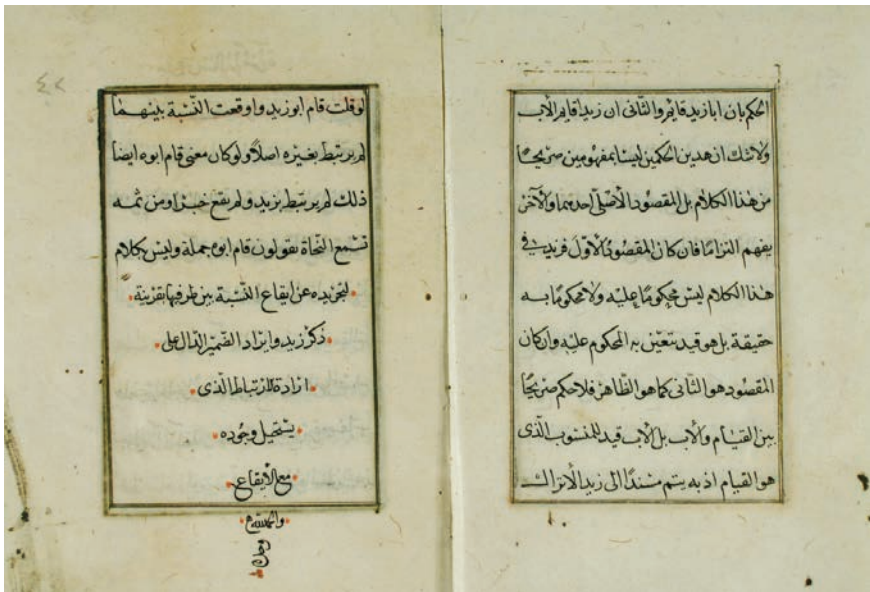 الحكم بان ابا زيد قايم والثانى ان زيدا قايم الأب
ولاشك ان هذين الحكمين ليسا بمفهومين صريحًا
من هذا الكلام بل المقصود الأصلى احدهما والآخر
يفهم التزامًا فان كان المقصود الأوّل فزيد فى
هذا الكلام ليس محكومًا عليه ولا محكومًا به
حقيقة بل هو قيد يتعيّن به المحكوم عليه وان كان
المقصود هو الثانى كما هو الظّاهر فلا حكم صريحًا
بين القيام والأب بل الأب قيد للمنسوب الّذى
هو القيام اذ به يتم مسندًا الى زيد الا تراك
لو قلت قام ابو زيد واوقعت النّسبة بينهما
لم يرتبط بغيره اصلًا ولو كان معنى قام ابوه ايضاً
ذلك لم يرتبط بزيد ولم يقع خبرا ومن ثمه
تسمع النّحاة يقولون قام ابوه جملة وليس بكلام
لتجريده عن ايقاع النّسبة بين طرفيها بقرينة
ذكر زيد وايراد الضّمير الدّال على
ارادة الارتباط الّذى
يستحيل وجوده
مع الأيقاع
والحمد لله
وحده